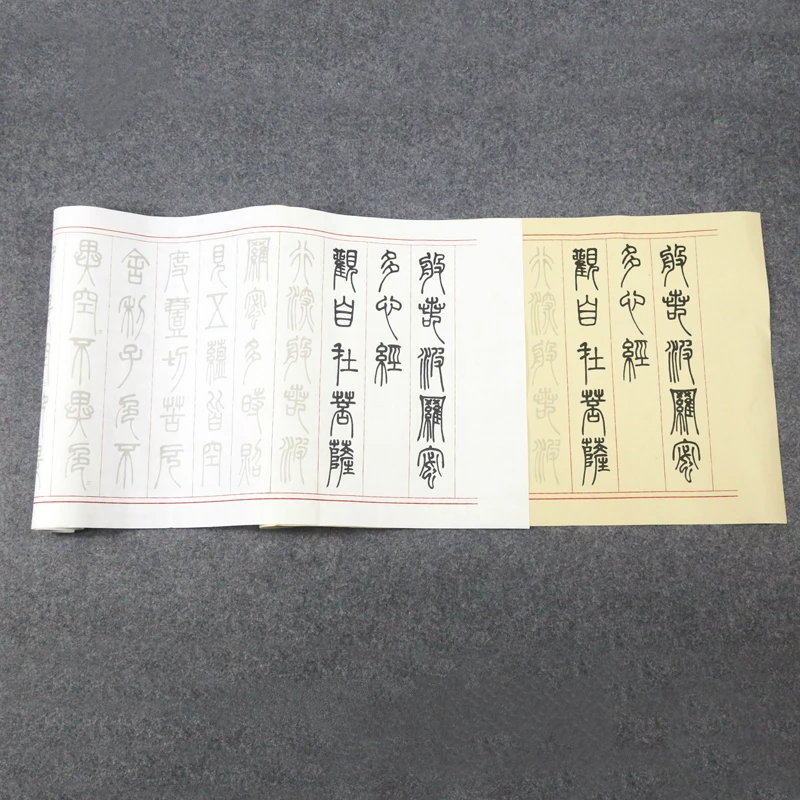 般若波羅蜜
多心經
觀自在菩薩
行深般若波
般若波羅蜜
多心經
觀自在菩薩
行深般若波
羅蜜多時照
見五蘊皆空
度壹切苦厄
舍利子色不
異空〻不異色